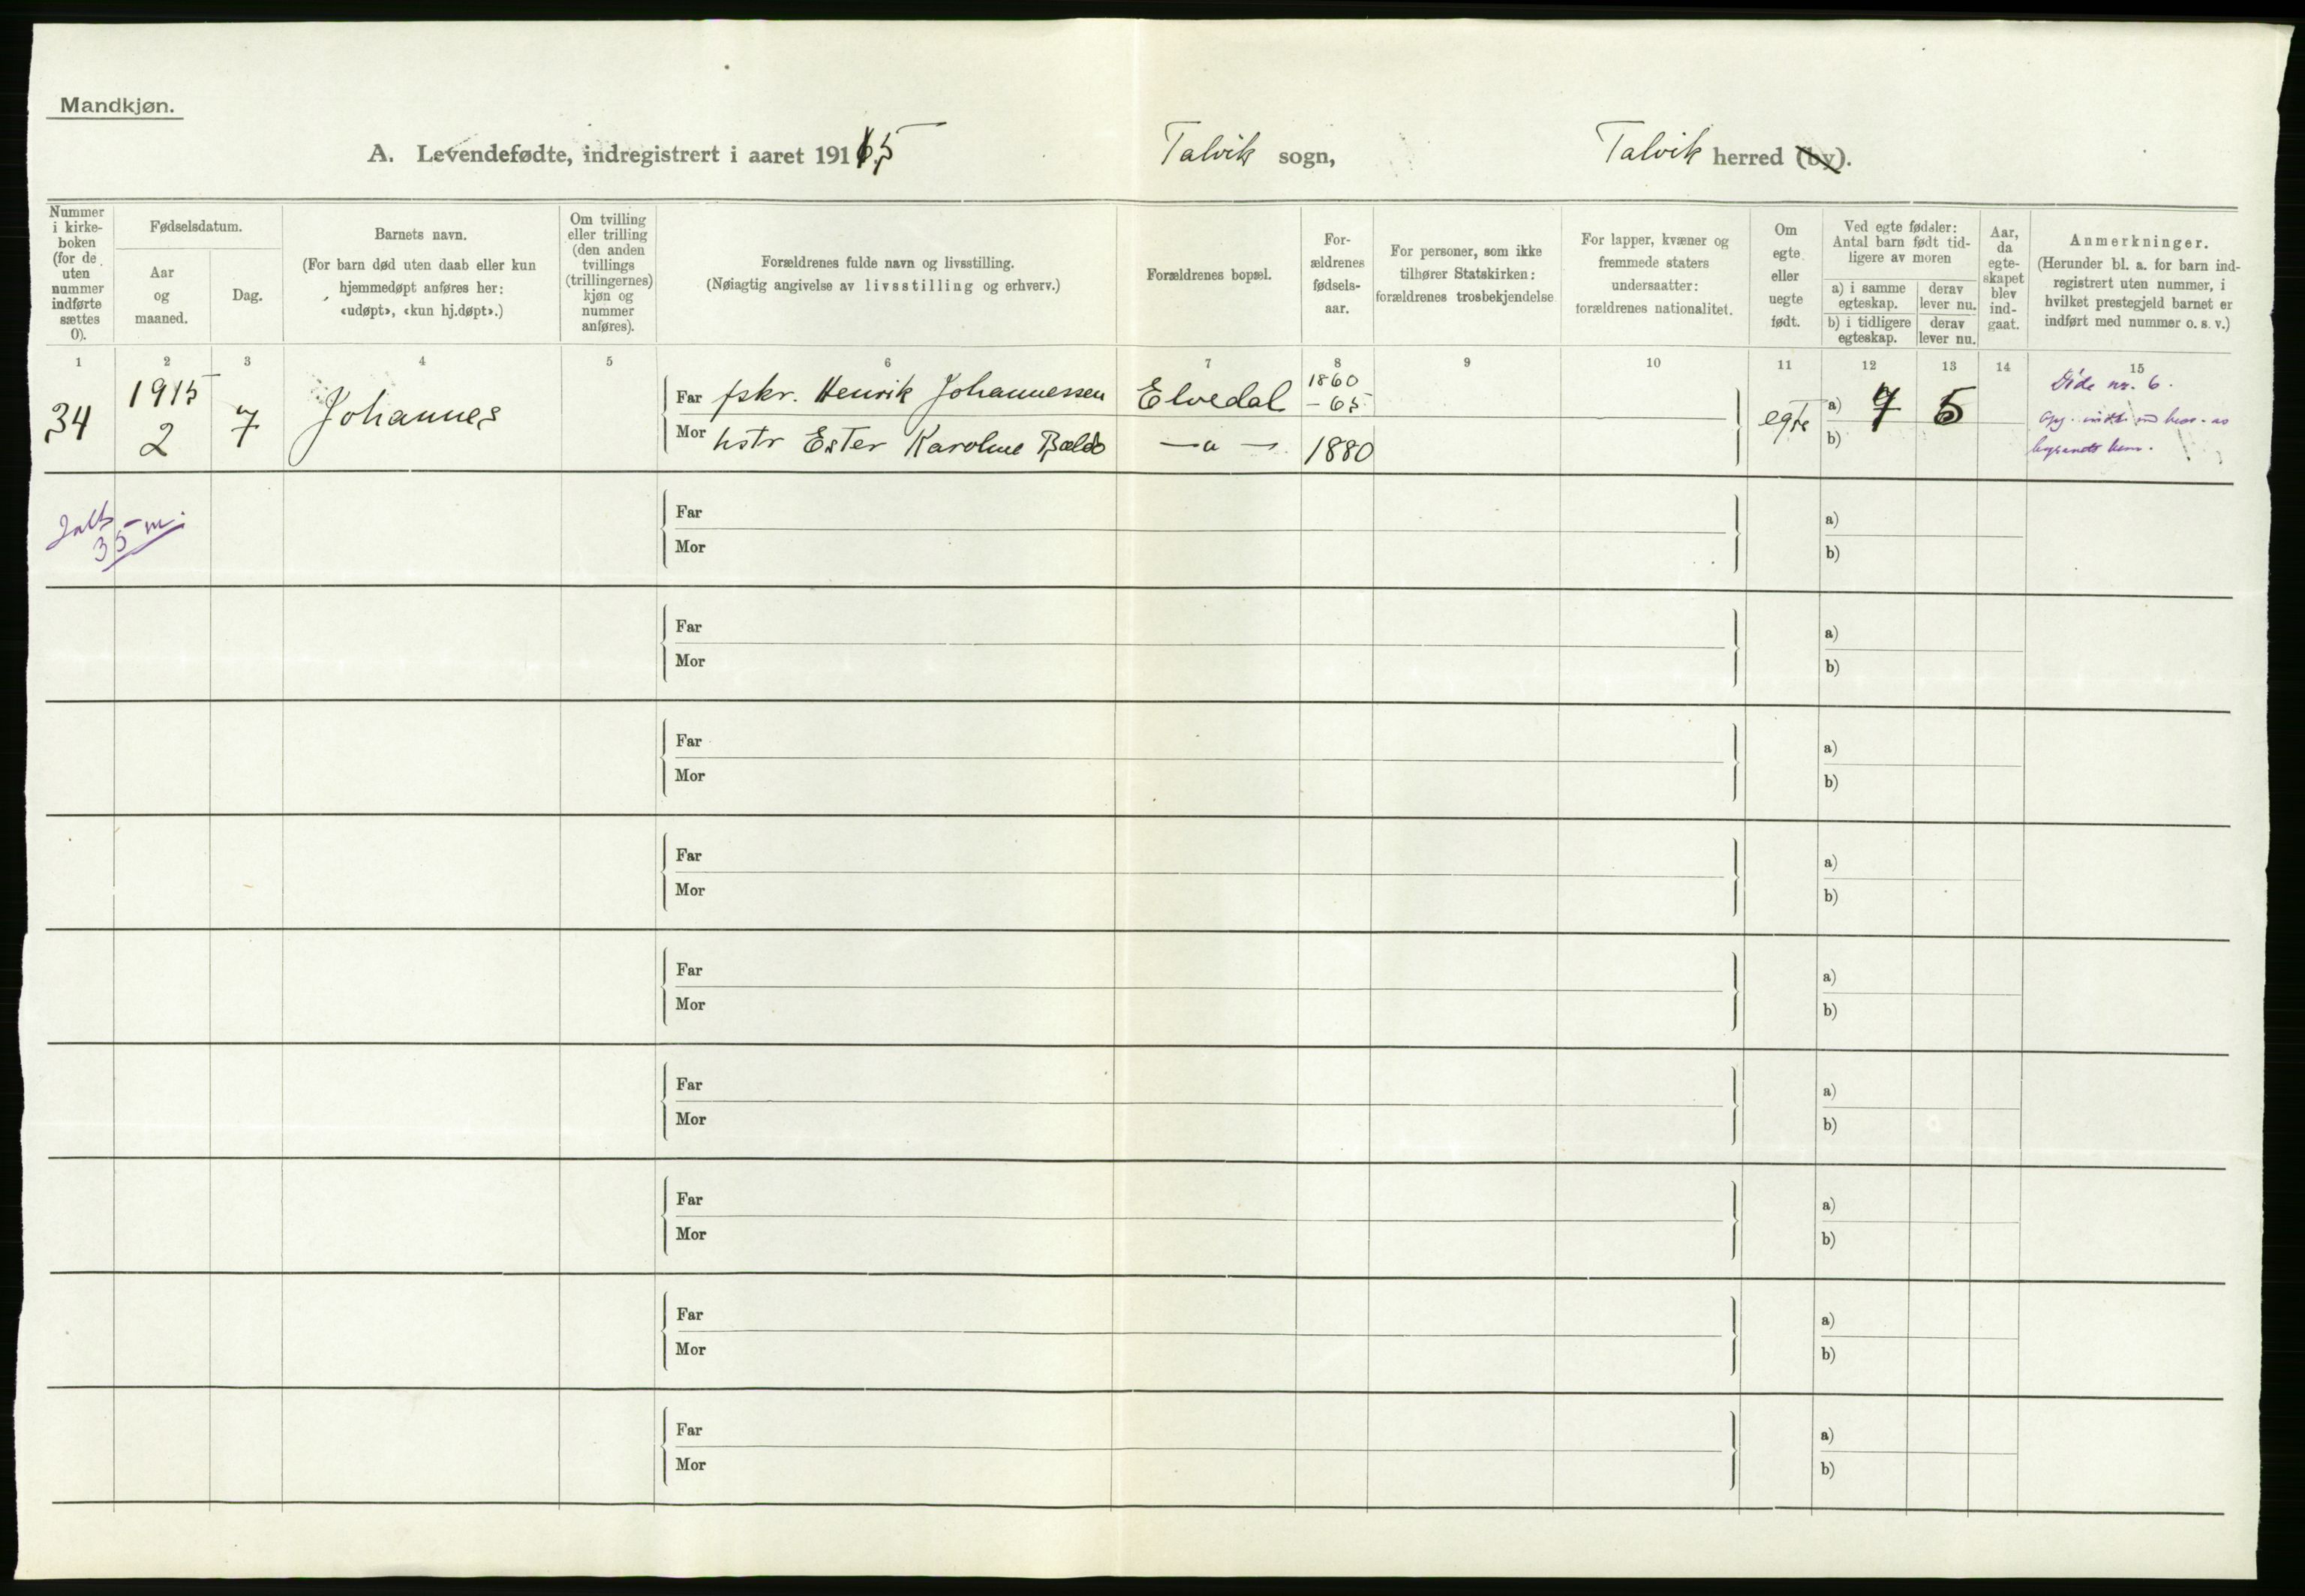 Mandkjøn.
A. Levendefødte, indregistrert i aaret 1915 Talvik sogn, Talvik herred (by).
Nummer i kirke-boken (for de uten nummer indførte sættes 0).
Fødselsdatum.
Aar og maaned.
Dag.
Barnets navn.
(For barn død uten daab eller kun
hjemmedøpt anføres her:
«udøpt», «kun hj.døpt».)
Om tvilling
eller trilling
(den anden
tvillings
(trillingernes)
kjøn og
nummer
anføres).
Forældrenes fulde navn og livsstilling.
(Nøiagtig angivelse av livsstilling og erhverv.)
Forældrenes bopæl.
For-
ældrenes
fødsels-
aar.
For personer, som ikke
tilhører Statskirken:
forældrenes trosbekjendelse
For lapper, kvæner og
fremmede staters
undersaatter:
forældrenes nationalitet.
Om
egte
eller
uegte
født.
Ved egte fødsler:
Antal barn født tid-
ligere av moren
a) i samme
egteskap.
derav
lever nu.
b) i tidligere
egteskap.
derav
lever nu.
Aar,
da
egte-
skapet
blev
ind-
gaat.
Anmerkninger.
(Herunder bl. a. for barn ind-
registrert uten nummer, i
hvilket prestegjeld barnet er
indført med nummer o. s. v.)
1 2 3 4 5 6 7 8 9 10 11 12 13 14 15
34 1915 2 7 Johannes
Far fskr. Henrik Johannessen Elvedal 1860 - 65
Mor hstr Ester Karoline - " - 1880
egte a) 7 5
b)
Side nr. 6.
35 m.
Far a)
Mor b)
Far a)
Mor b)
Far a)
Mor b)
Far a)
Mor b)
Far a)
Mor b)
Far a)
Mor b)
Far a)
Mor b)
Far a)
Mor b)
Far a)
Mor b)